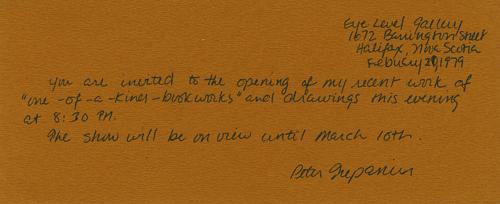 Eye Level Gallery
1672 Barrington Street
Halifax, Nova Scotia
February 1979
You are invited to the opening of my recent work of
"one-of-a-kind-bookworks" and drawings this evening
at 8:30 PM.
The show will be on view until March 10th.
Peter